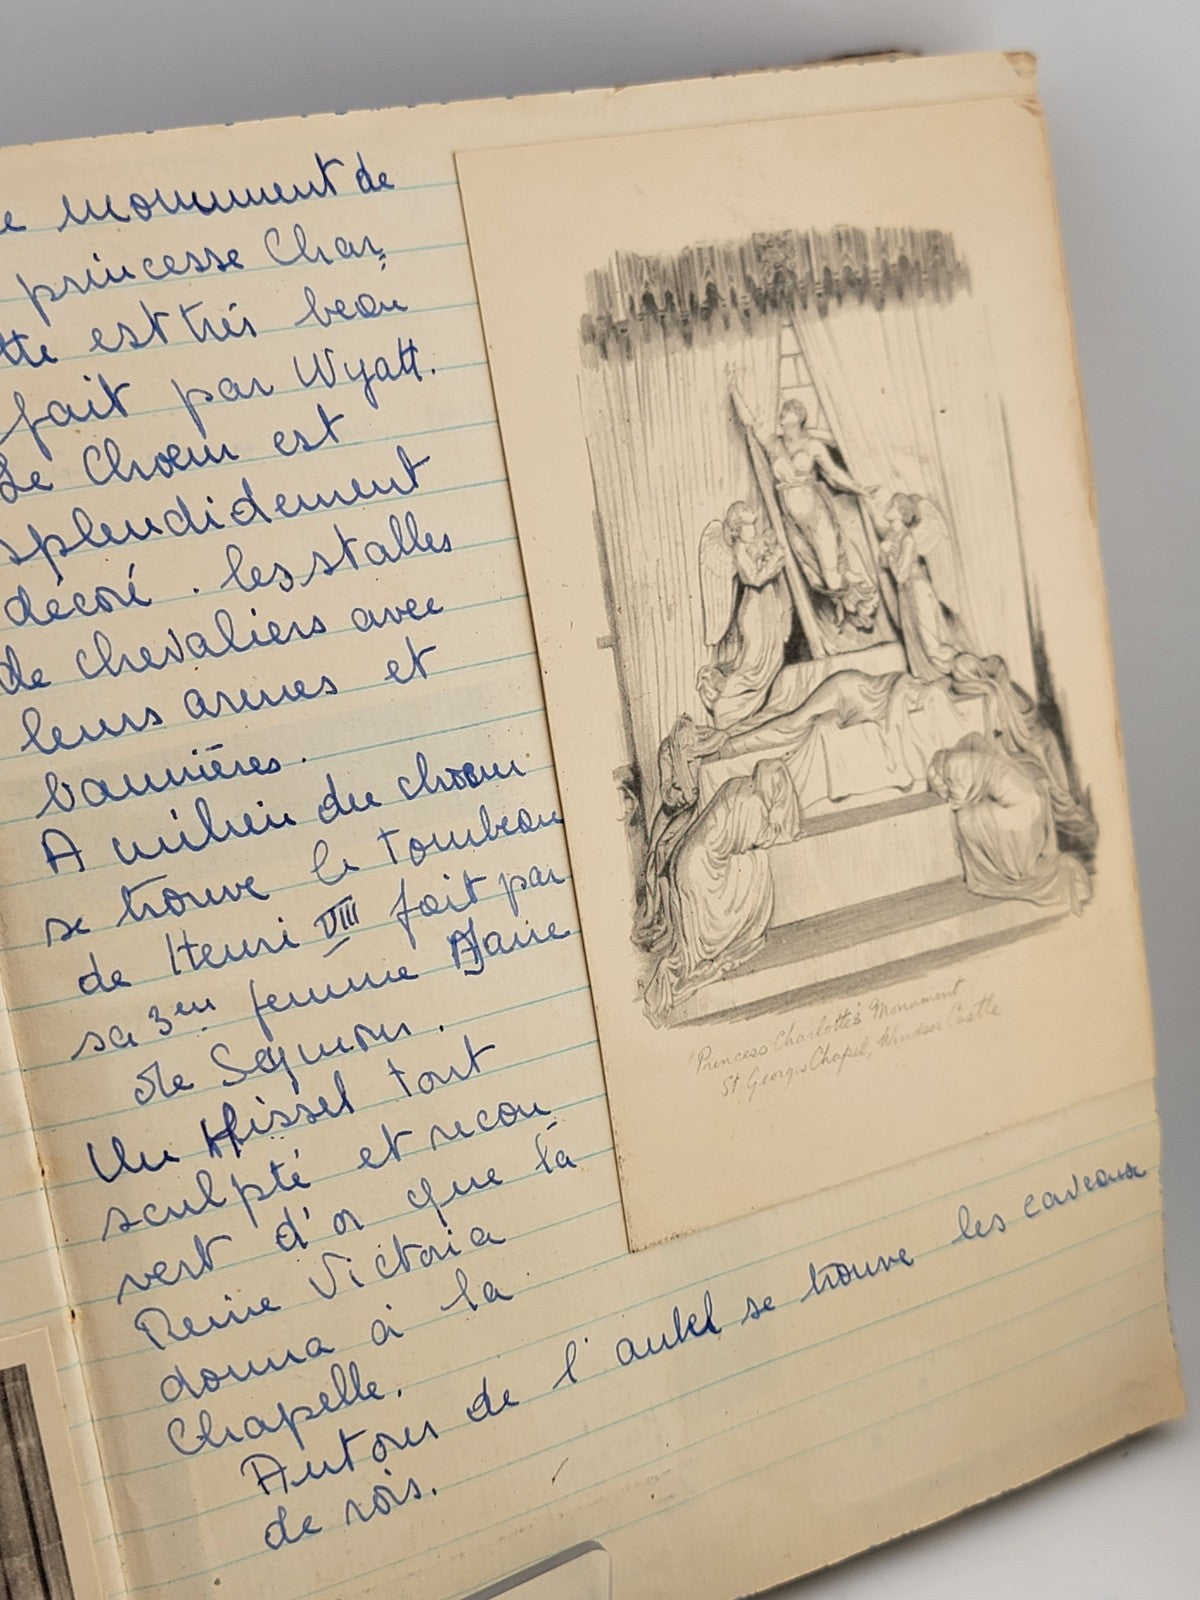 e monument de
princesse Char
tte est très beau
fait par Wyatt.
Le Chœur est
splendidement
décoré. les stalles
de chevaliers avec
leurs armes et
bannières.
A milieu du chœur
se trouve le tombeau
de Henri VIII fait par
sa 3em femme Jane
de Seymour.
Un Missel tout
sculpté et recou
vert d'or que la
Reine Victoria
donna à la
Chapelle.
Autour de l'autel se trouve les caveaux
de rois.
Princess Charlotte's Monument
St Georges Chapel, Windsor Castle